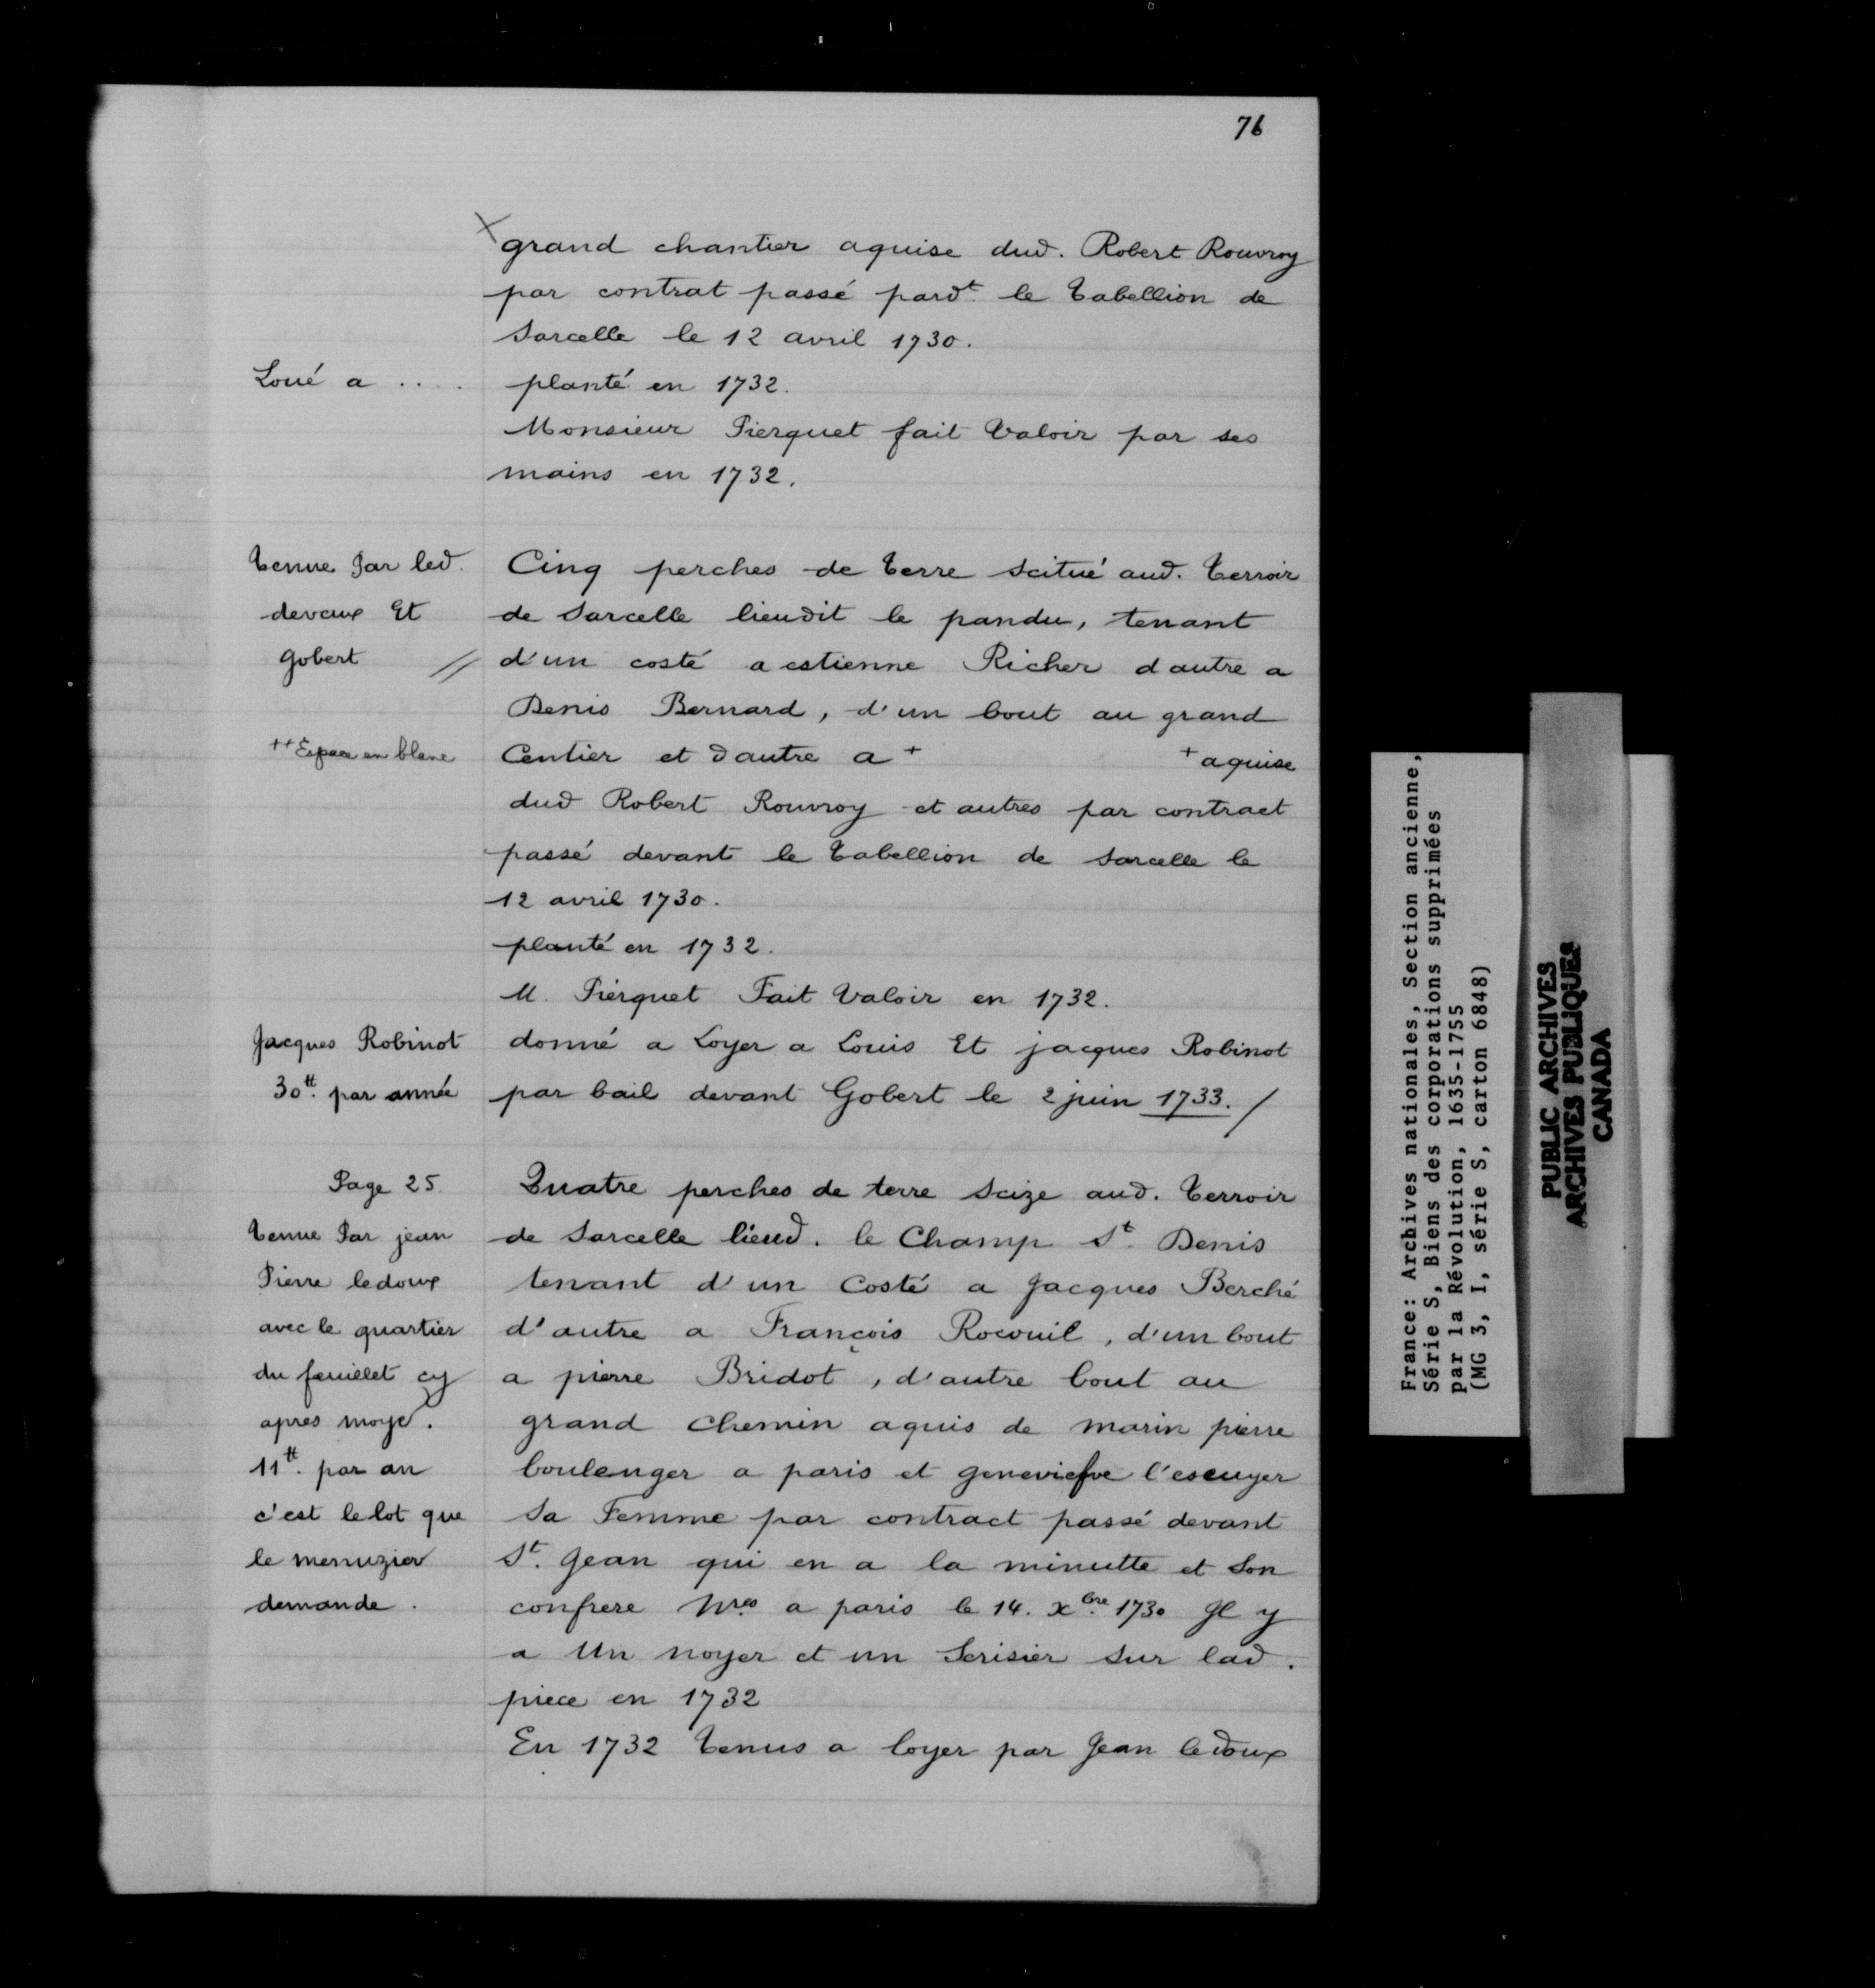 76
grand chantier aquise dud. Robert Rouvroy
par contrat passé pardt. le tabellion de
Sarcelle le 12 avril 1730.
Loué a ....
planté en 1732.
Monsieur Pierquet fait Valoir par ses
mains en 1732.
tenue Par led.
devaux Et
gobert //
++ Espace en blanc
Cinq perches de terre scitué aud. terroir
de Sarcelle lieudit le pandu, tenant
d'un costé a estienne Richer d autre a
Denis Bernard, d'un bout au grand
Centier et dautre a + + aquise
dud Robert Rouvroy et autres par contract
passé devant le tabellion de Sarcelle le
12 avril 1730.
planté en 1732.
M. Pierquet Fait Valoir en 1732.
Jacques Robinot
30tt. par année
donné a Loyer a Louis Et jacques Robinot
par bail devant Gobert le 2 juin 1733. /
Page 25.
tenue Par jean
Pierre ledoux
avec le quartier
du feuillet cy
apres moyé.
11tt. par an
c'est le lot que
le menuzier
demande.
Quatre perches de terre Scize aud. terroir
de Sarcelle lieud. le Champ St. Denis
tenant d'un Costé a Jacques Berché
d'autre a François Rocouil, d'un bout
a pierre Bridot, d'autre bout au
grand chemin aquis de marin pierre
boulenger a paris et geneviefve l'escuyer
Sa Femme par contract passé devant
St. Jean qui en a la minutte et Son
confrere Nres a paris le 14. xbre. 1730 Il y
a Un noyer et un Serisier Sur lad.
piece en 1732
En 1732 tenus a loyer par Jean ledoux
France: Archives nationales, Section ancienne,
Série S, Biens des corporations supprimées
par la Révolution, 1635-1755
(MG 3, I, série S, carton 6848)
PUBLIC ARCHIVES
ARCHIVES PUBLIQUES
CANADA